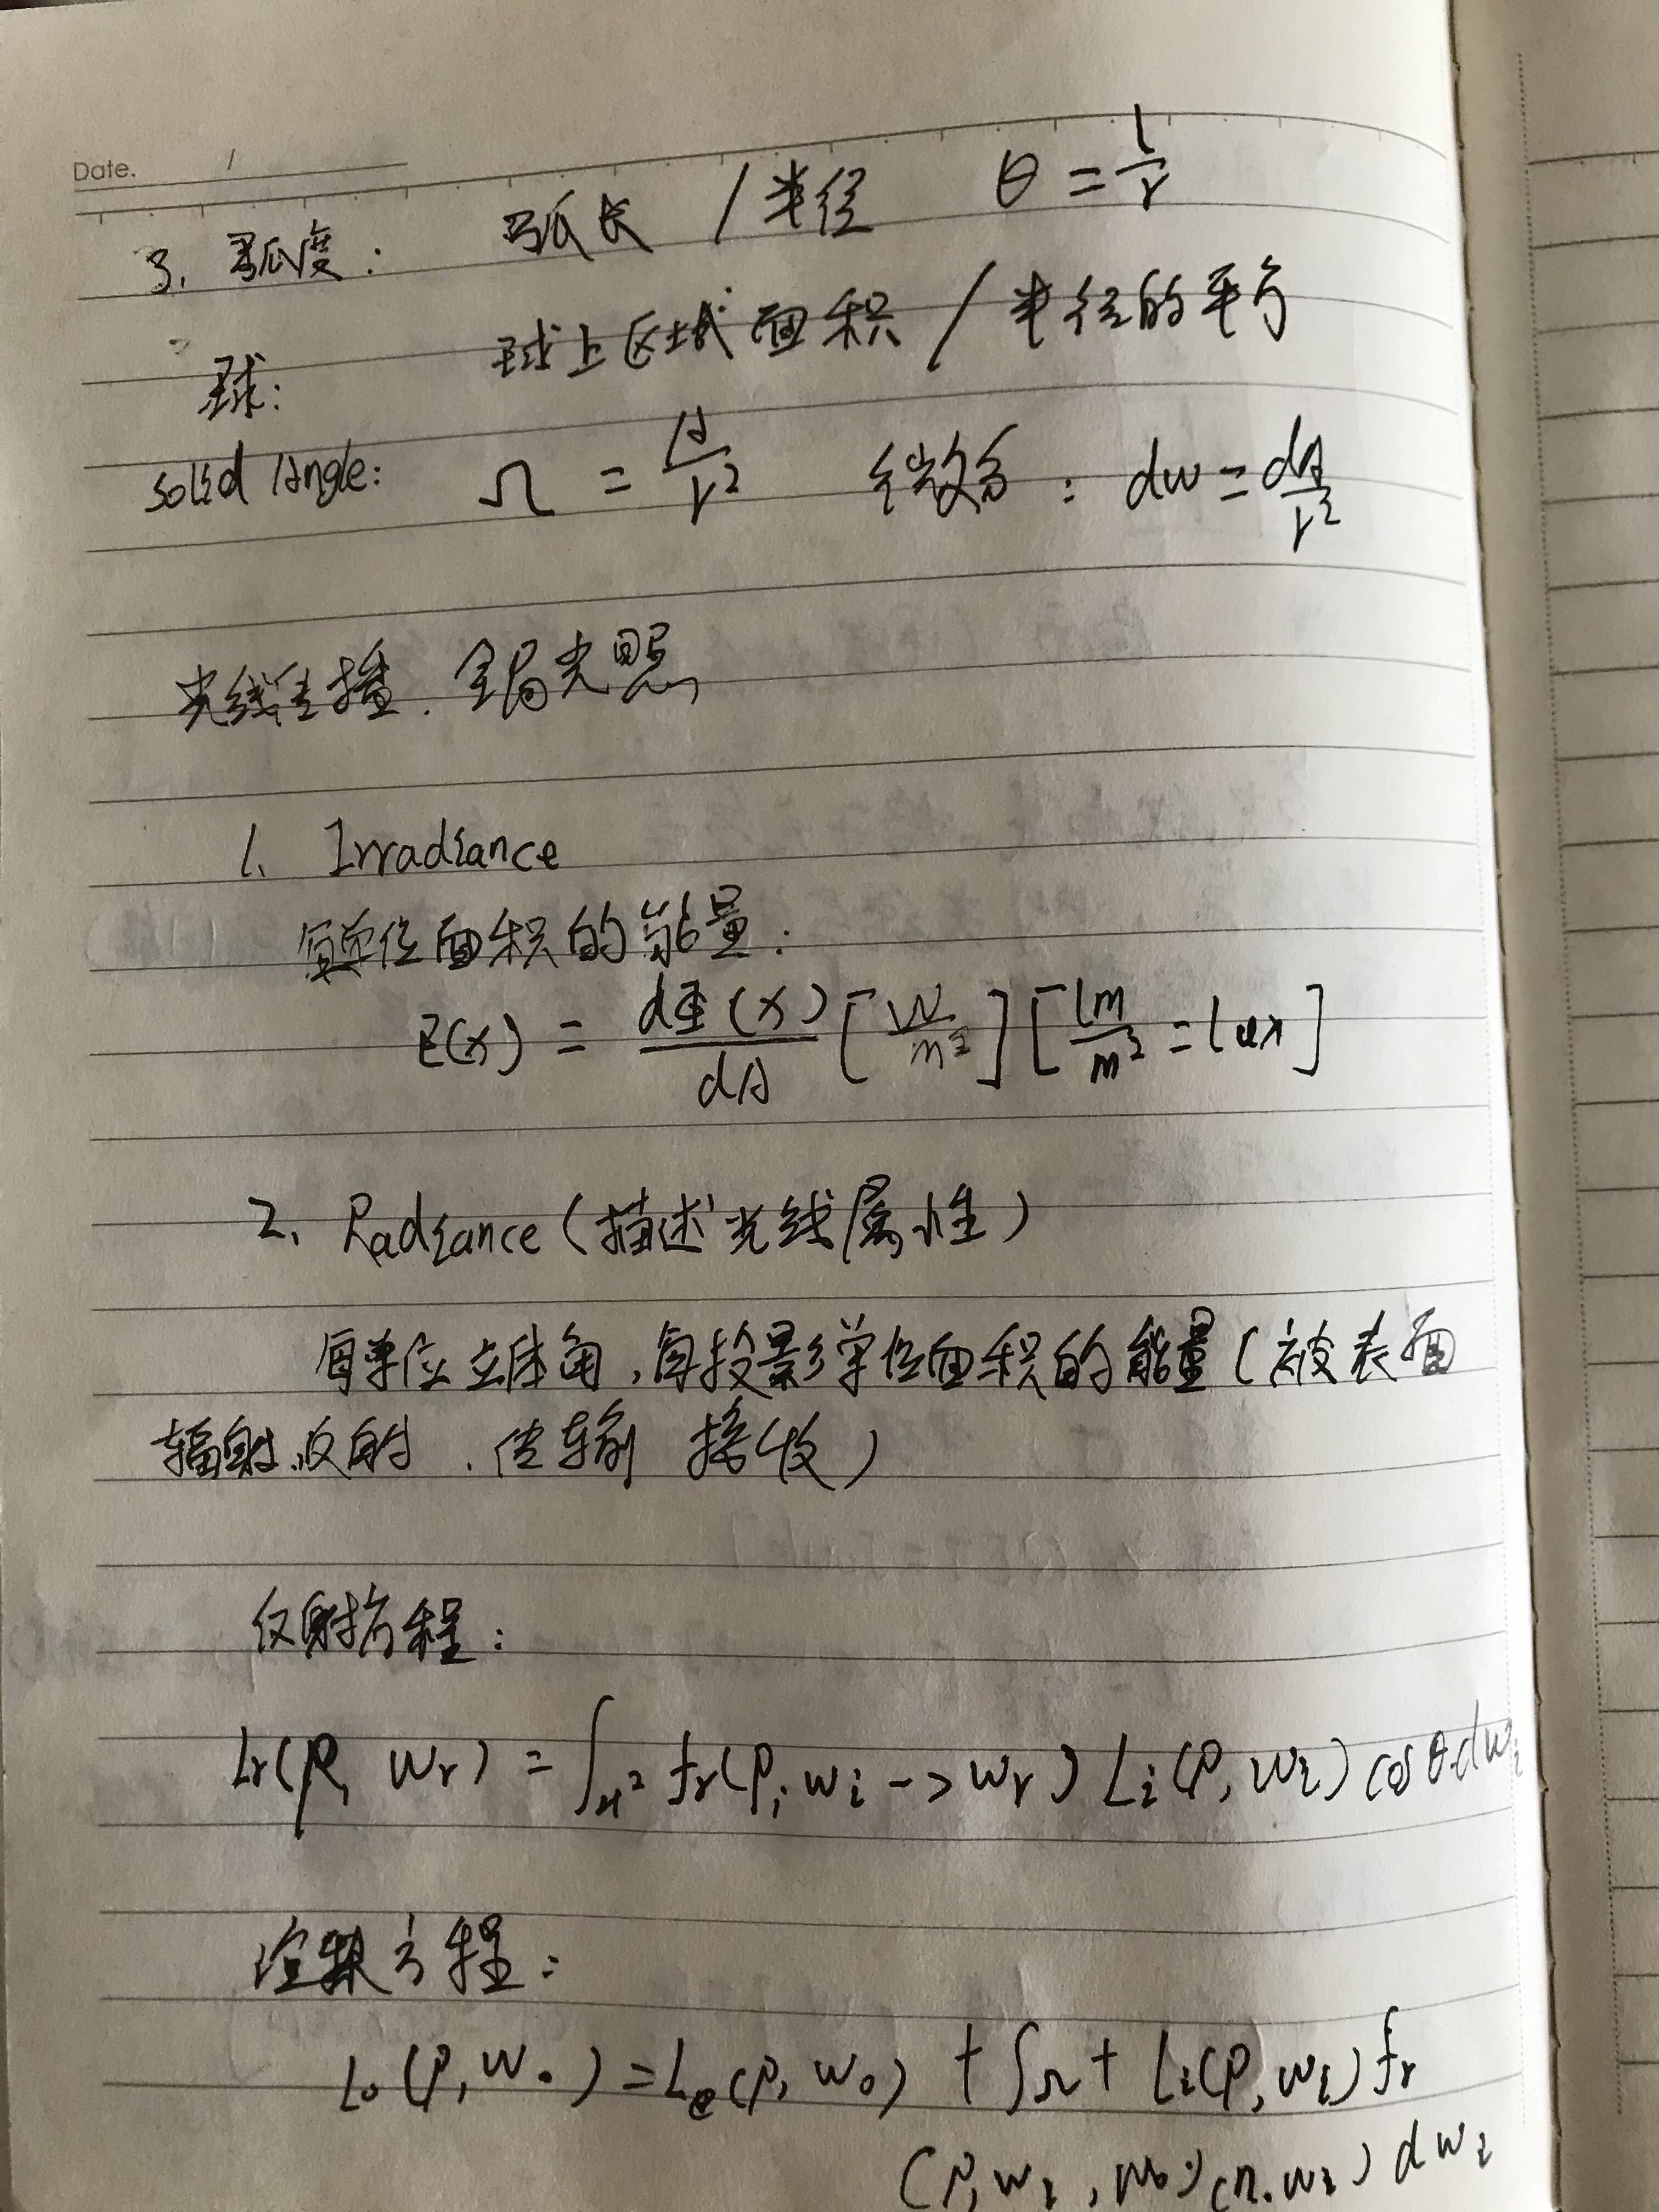 Date. /
3. 弧度: 弧长 / 半径 θ = l/r
球: 球上区域面积 / 半径的平方
solid angle: Ω = A/r² 微分: dω = dA/r²
光线传播. 全局光照
1. Irradiance
每单位面积的能量:
E(x) = dΦ(x)/dA [W/m²] [lm/m² = lux]
2. Radiance (描述光线属性)
每单位立体角,每投影单位面积的能量(被表面
辐射.反射、传输 接收)
反射方程:
Lr(p, ωr) = ∫H² fr(p, ωi -> ωr) Li(p, ωi) cosθi dωi
渲染方程:
Lo(p, ωo) = Le(p, ωo) + ∫Ω+ Li(p, ωi) fr
(p, ωi, ωo) (n.ωi) dωi